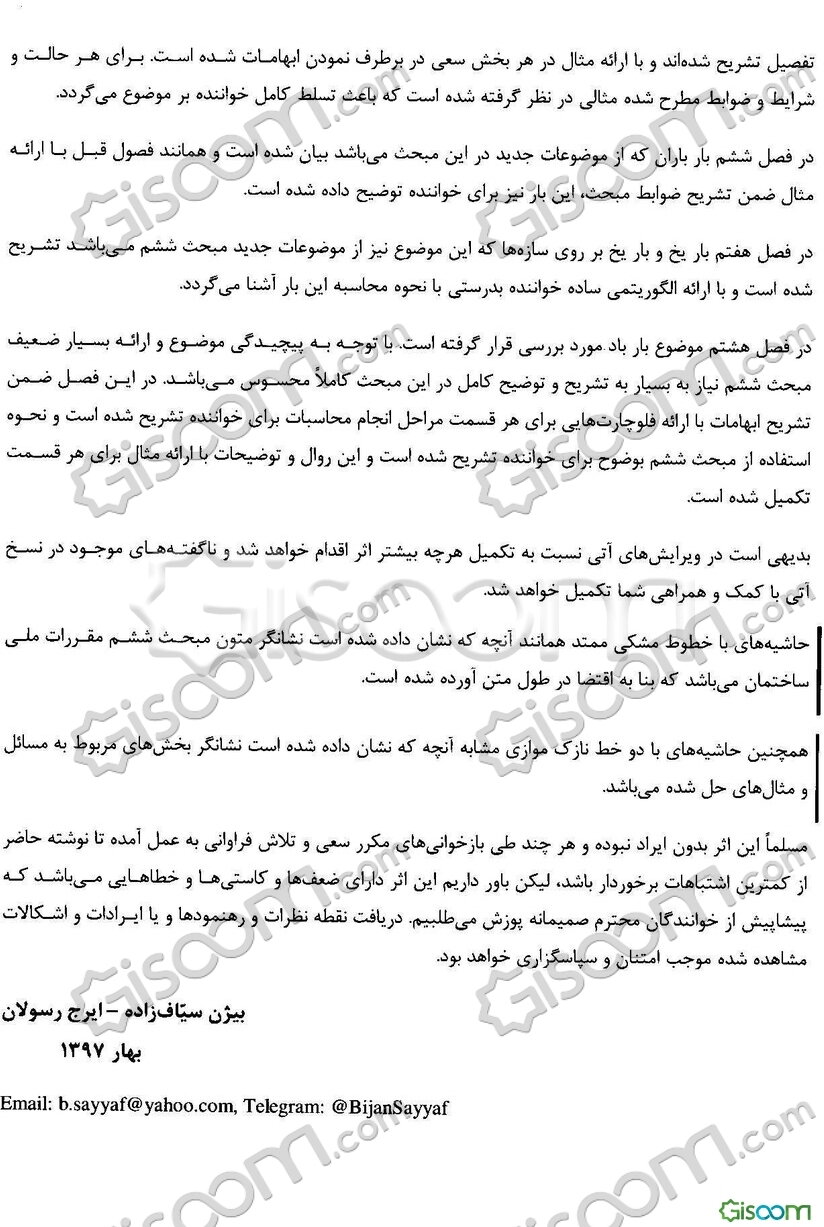 تفصیل تشریح شده‌اند و با ارائه مثال در هر بخش سعی در برطرف نمودن ابهامات شده است. برای هر حالت و
شرایط و ضوابط مطرح شده مثالی در نظر گرفته شده است که باعث تسلط کامل خواننده بر موضوع می‌گردد.
در فصل ششم بار باران که از موضوعات جدید در این مبحث می‌باشد بیان شده است و همانند فصول قبل با ارائه
مثال ضمن تشریح ضوابط مبحث، این بار نیز برای خواننده توضیح داده شده است.
در فصل هفتم بار یخ و بار یخ بر روی سازه‌ها که این موضوع نیز از موضوعات جدید مبحث ششم می‌باشد تشریح
شده است و با ارائه الگوریتمی ساده خواننده بدرستی با نحوه محاسبه این بار آشنا می‌گردد.
در فصل هشتم موضوع بار باد مورد بررسی قرار گرفته است. با توجه به پیچیدگی موضوع و ارائه بسیار ضعیف
مبحث ششم نیاز به بسیار به تشریح و توضیح کامل در این مبحث کاملاً محسوس می‌باشد. در این فصل ضمن
تشریح ابهامات با ارائه فلوچارت‌هایی برای هر قسمت مراحل انجام محاسبات برای خواننده تشریح شده است و نحوه
استفاده از مبحث ششم بوضوح برای خواننده تشریح شده است و این روال و توضیحات با ارائه مثال برای هر قسمت
تکمیل شده است.
بدیهی است در ویرایش‌های آتی نسبت به تکمیل هرچه بیشتر اثر اقدام خواهد شد و ناگفته‌های موجود در نسخ
آتی با کمک و همراهی شما تکمیل خواهد شد.
حاشیه‌های با خطوط مشکی ممتد همانند آنچه که نشان داده شده است نشانگر متون مبحث ششم مقررات ملی
ساختمان می‌باشد که بنا به اقتضا در طول متن آورده شده است.
همچنین حاشیه‌های با دو خط نازک موازی مشابه آنچه که نشان داده شده است نشانگر بخش‌های مربوط به مسائل
و مثال‌های حل شده می‌باشد.
مسلماً این اثر بدون ایراد نبوده و هر چند طی بازخوانی‌های مکرر سعی و تلاش فراوانی به عمل آمده تا نوشته حاضر
از کمترین اشتباهات برخوردار باشد، لیکن باور داریم این اثر دارای ضعف‌ها و کاستی‌ها و خطاهایی می‌باشد که
پیشاپیش از خوانندگان محترم صمیمانه پوزش می‌طلبیم. دریافت نقطه نظرات و رهنمودها و یا ایرادات و اشکالات
مشاهده شده موجب امتنان و سپاسگزاری خواهد بود.
بیژن سیّاف‌زاده – ایرج رسولان
بهار ۱۳۹۷
Email: b.sayyaf@yahoo.com, Telegram: @BijanSayyaf
Gisoom